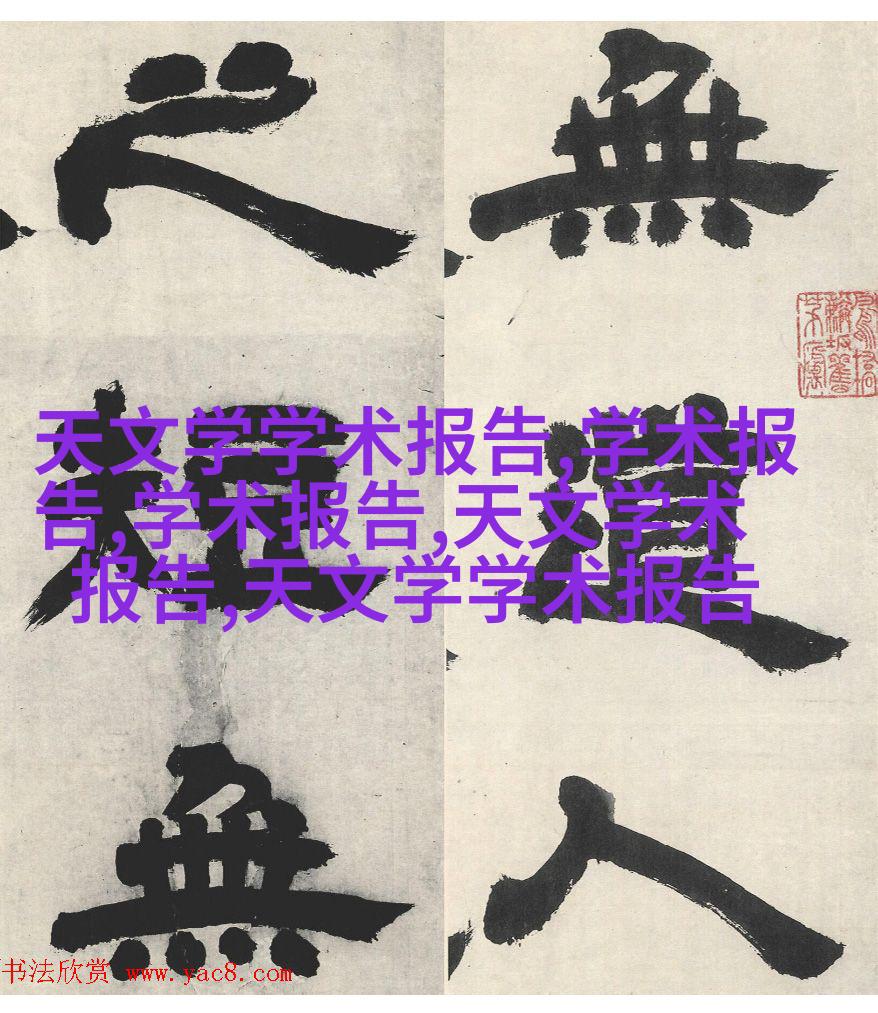 無
道
人
之
短
無
天文学学术报告,学术报
告,学术报告,天文学术
报告,天文学学术报告
书法欣赏 www.yac8.com